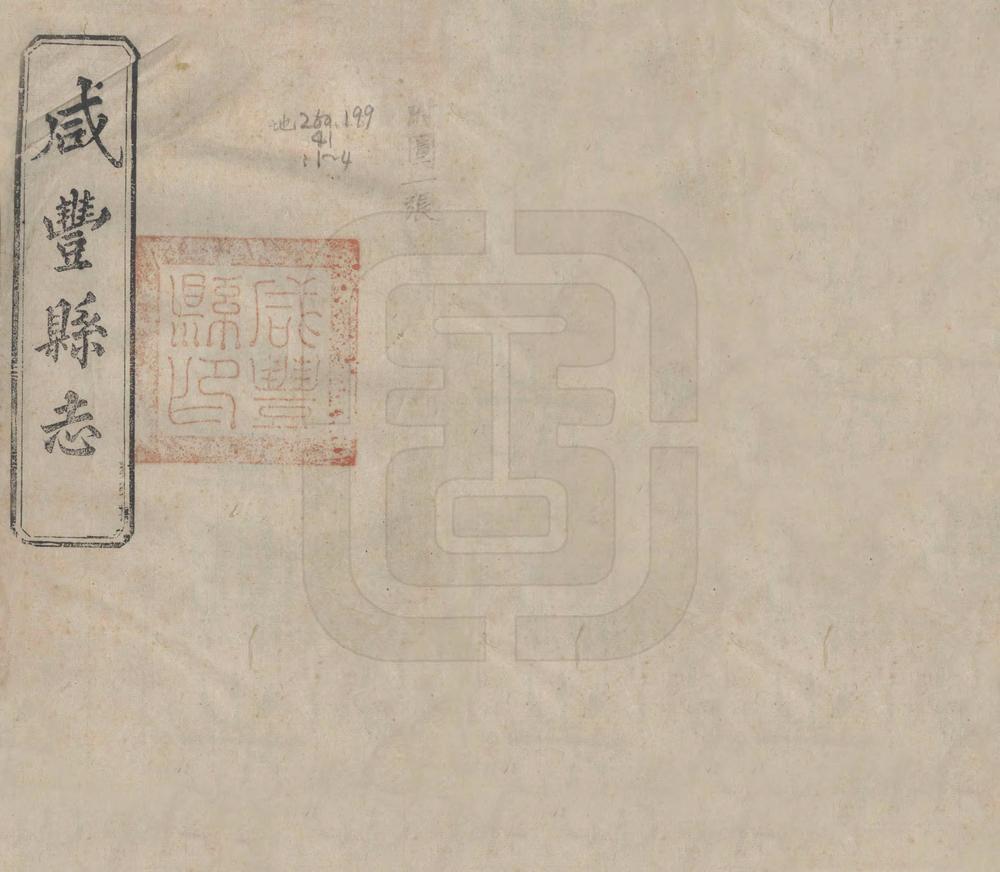 咸豐縣志
咸豐
縣印
地250.199
41
:1~4
附圖一張